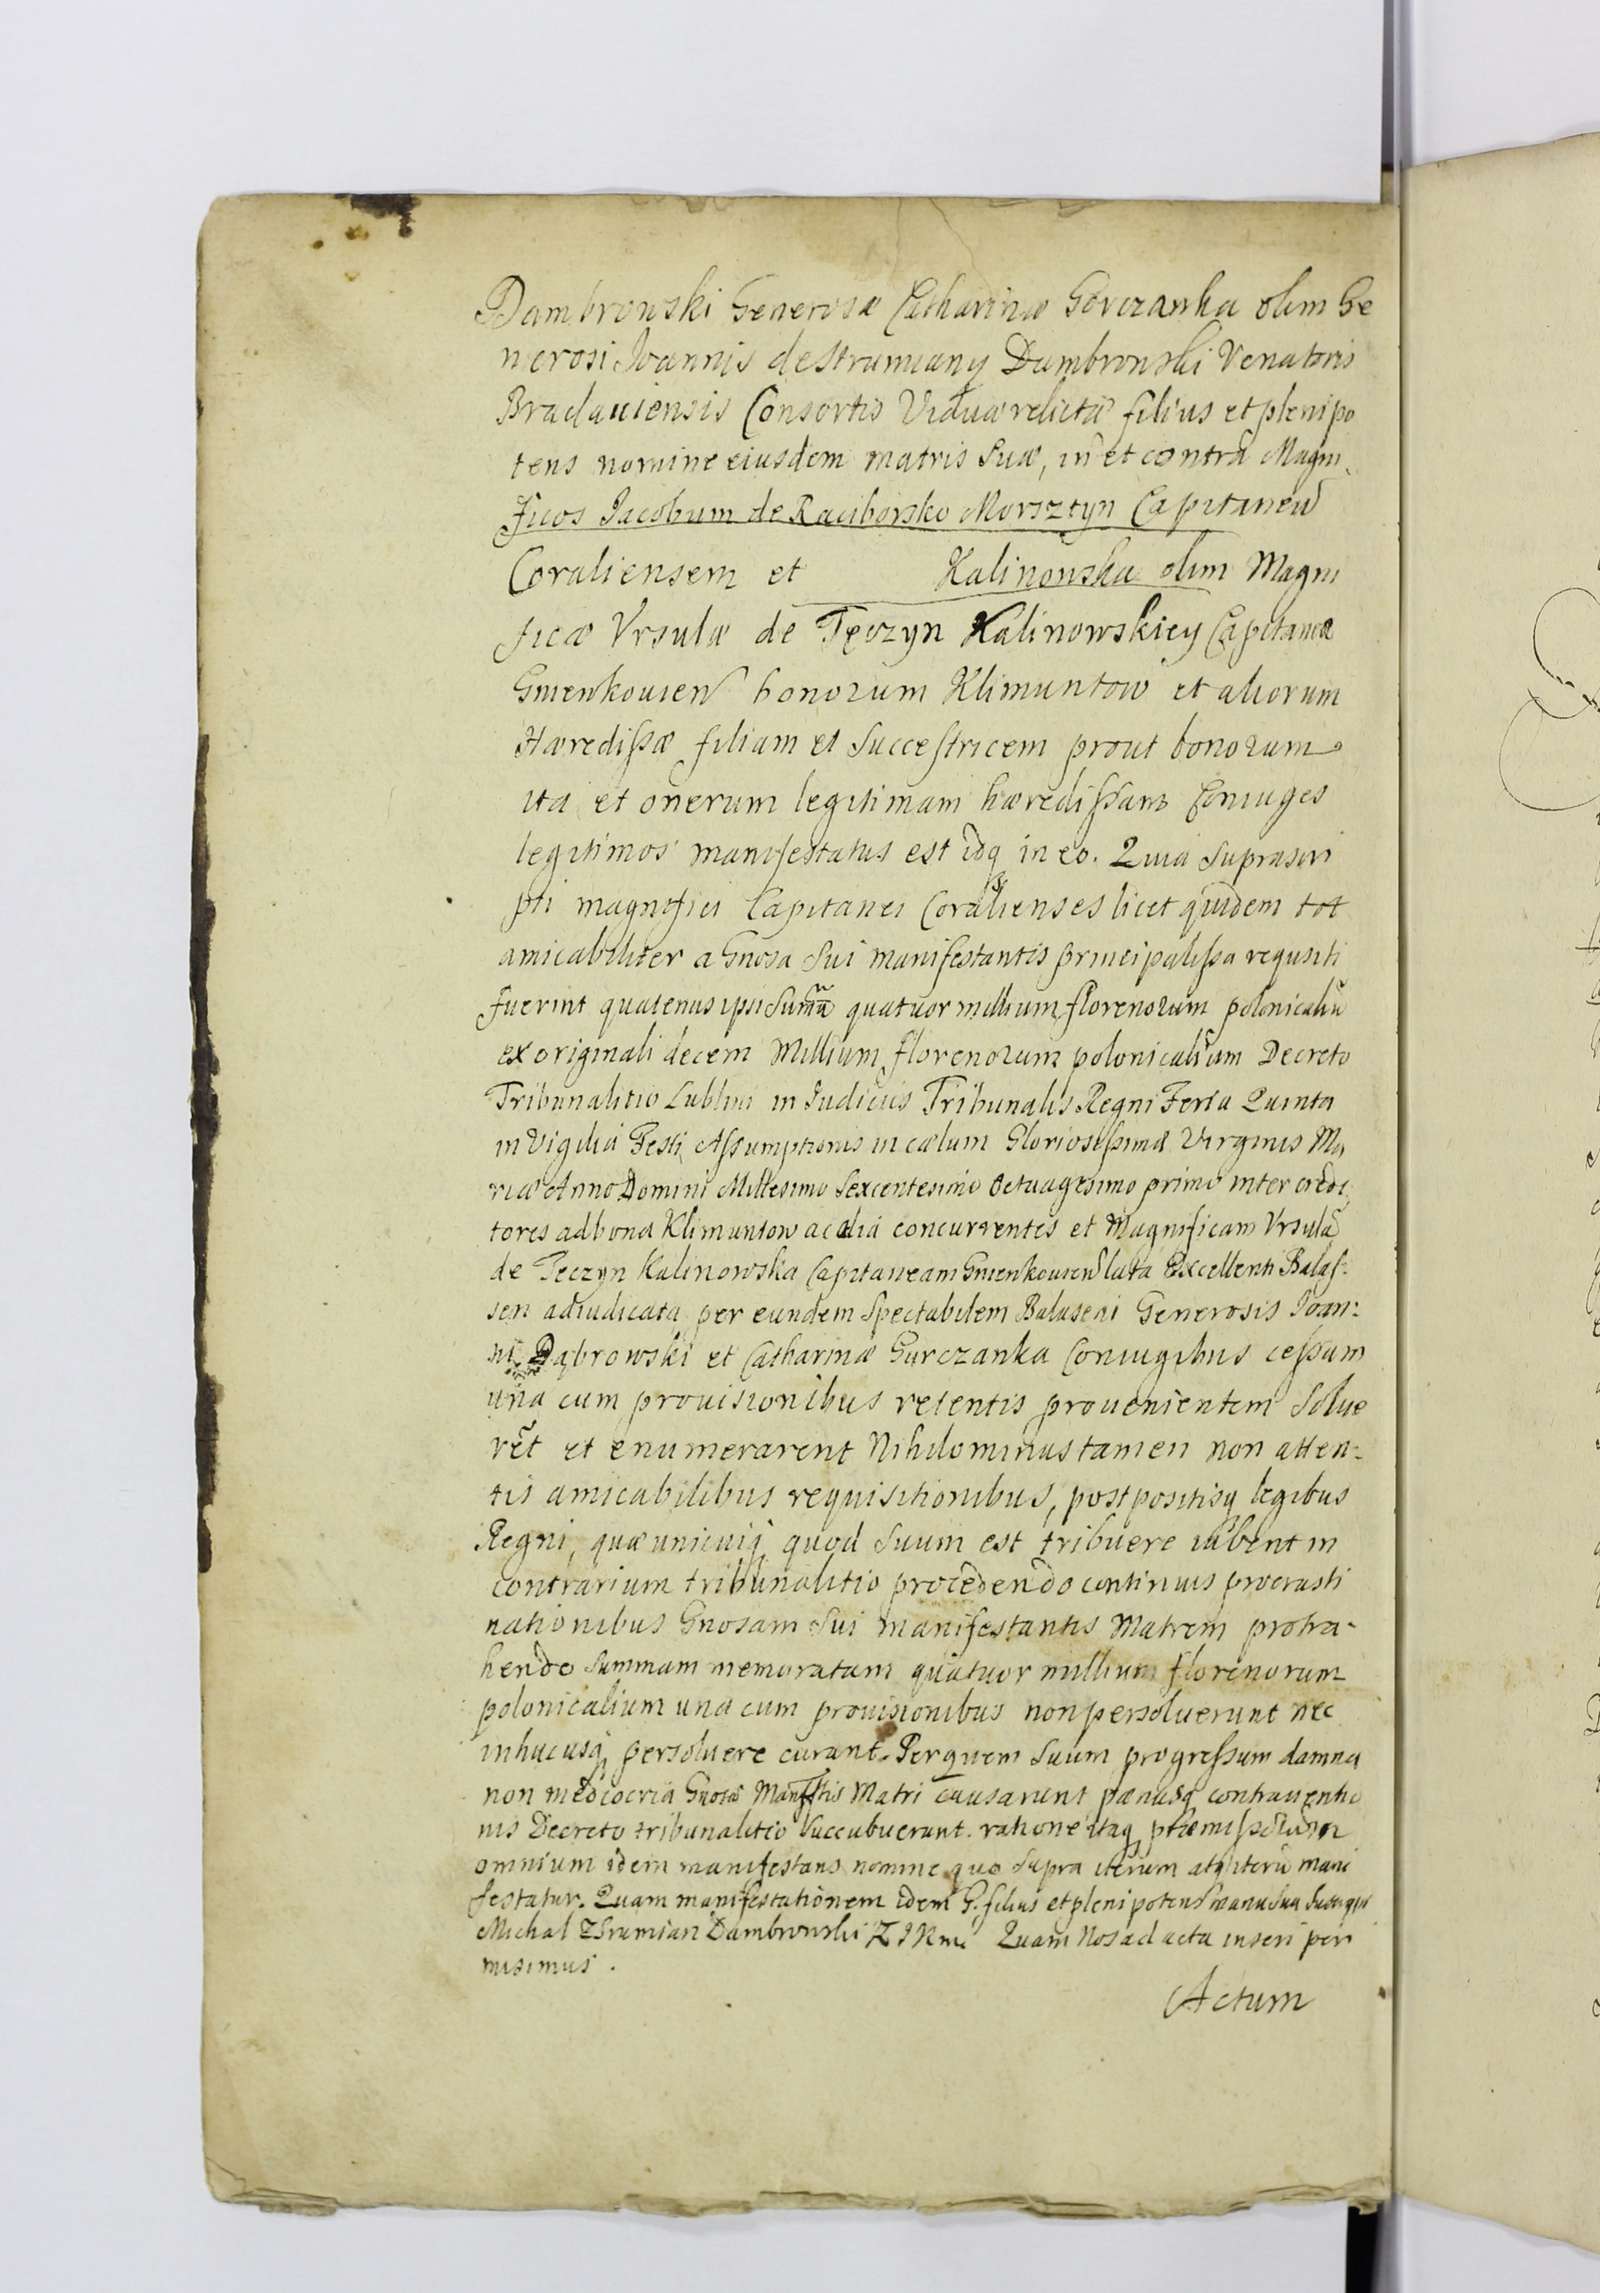 Dambrowski Generosæ Catharinæ Gorczanka olim Ge
nerosi Joannis de Strumiany Dambronski Venatoris
Braclauiensis Consortis Viduæ relictæ filius et plenipo
tens nomine eiusdem matris suæ, in et contra Magni
ficos Jacobum de Raciborsko Morsztyn Capitaneũ
Coraliensem et Kalinowska olim Magni
ficæ Vrsulæ de Tęczyn Kalinowskiey Capitanea
honorum Klimuntow et aliorum
Hæredissæ filiam et Successtricem prout bonorum
ita et onerum legitimam hæredissam Coniuges
legitimos manifestatus est idq in eo. Quia suprascri
pti magnifici Capitanei Coralienses licet quidem tot
amicabiliter a Gnosa sui manifestantis principalissa requsiti
fuerint quatenus ipsi sumã quatuor millium florenorum polonicaliũ
ex originali decem Millium florenorum polonicalium Decreto
Tribunalitio Lublini in Judiciis Tribunalis Regni Feria Quinta
in Vigilia Festi Assumptionis in cælum Gloriosissimæ Virginis Ma
riæ Anno Domini Millesimo Sexcentesimo Octuagesimo primo inter credi
tores ad bona Klimuntow ac alia concurrentes et Magnificam Vrsulã
de Teczyn Kalinowska Capitaneam lata Excellenti Balas-
sen adiudicata per eundem Spectabilem Balaseni Generosis Joan-
ni Dąbrowski et Catharinæ Gurczanka Coniugibus cessam
una cum prouisionibus retentis prouenientem solue
rẽt et enumerarent Nihilominus tamen non atten-
tis amicabilibus requisitionibus, postpositisq legibus
Regni, quæ unicuiq quod suum est tribuere iubent in
contrarium tribunalitio procedendo continuis procrasti
nationibus Gnosam sui manifestantis Matrem protra-
hendo summam memoratam quatuor millium florenorum
polonicalium una cum prouisionibus non persoluerunt nec
inhucusq persoluere curant. Per quem suum progressum damna
non mediocria Gnosæ Manftis Matri causarunt pænasq contrauentio
nis Decreto tribunalitio succubuerunt. ratione itaq præmissorum
omnium idem manifestans nomine quo supra iterum atq iterũ mani
festatur. Quam manifestationem idem G. filius et plenipotens manu sua
Michal Dambrowski Quam Nos ad acta inseri per
misimus.
Actum